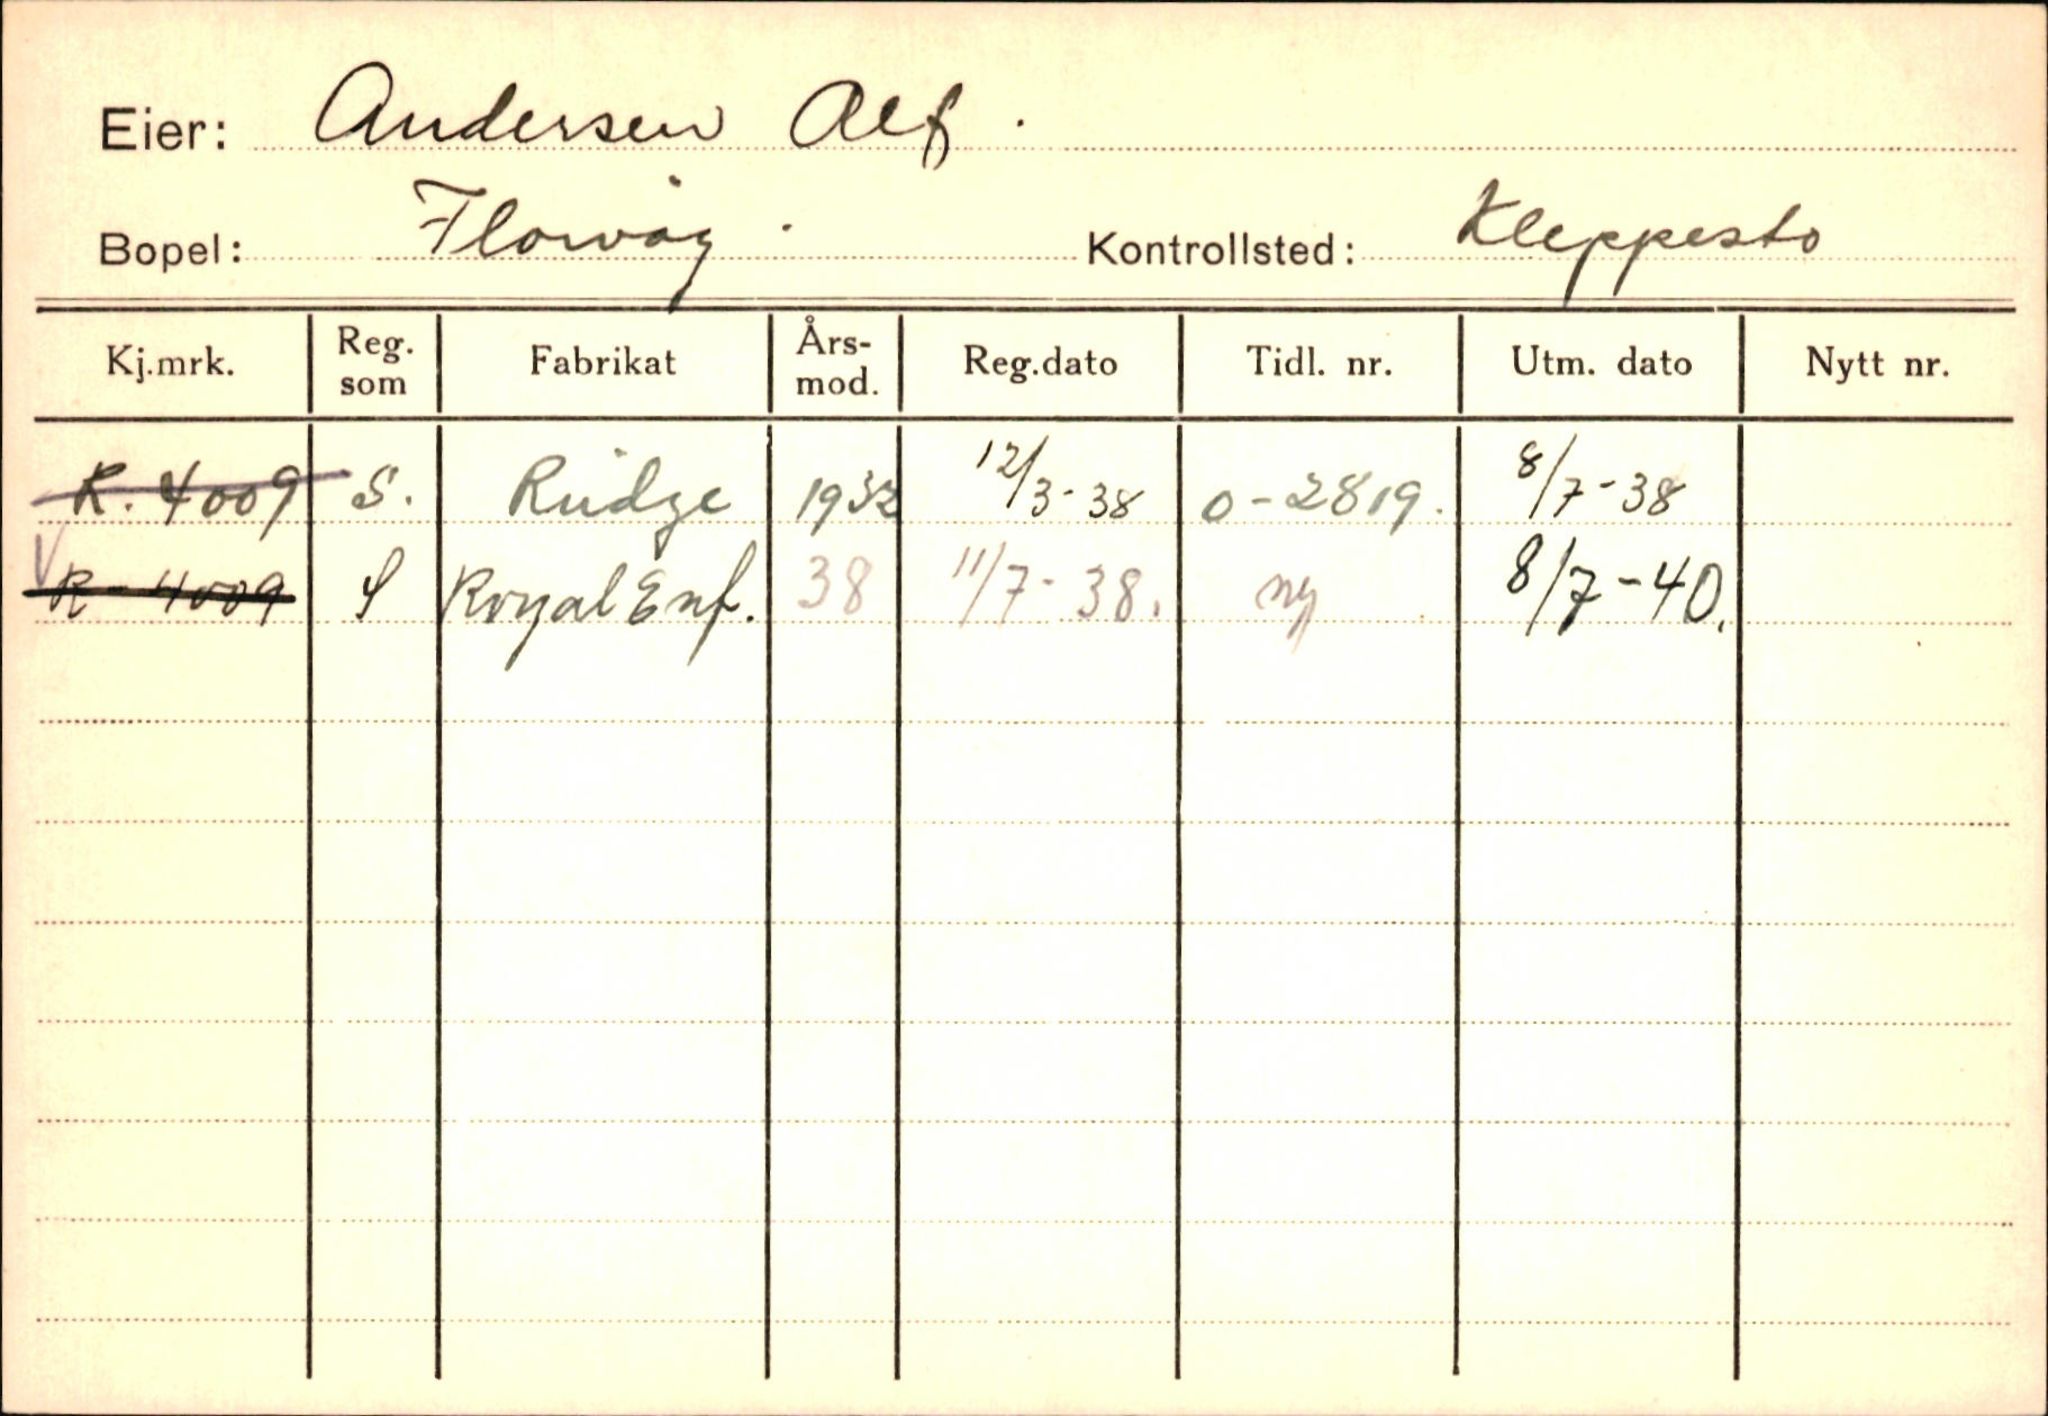 Eier: Andersen Alf.
Bopel: Florvåg. Kontrollsted: Kleppestø
Kj.mrk. Reg. som Fabrikat Års-mod. Reg.dato Tidl. nr. Utm. dato Nytt nr.
R. 4009 S. Rudge 1932 12/3-38 O-2819. 8/7-38
R-4009 S Royal Enf. 38 11/7-38. ny 8/7-40.